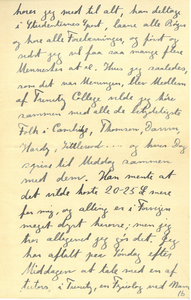 hores jeg med til alt, kan deltage
i Studenternes Sport, laane alle Bøger
og høre alle Forelæsninger, og først og
sidst jeg vil faa saa mange flere
Mennesker at se. Hvis jeg saaledes,
som det var Meningen, blev Medlem
af Trinity College vilde jeg høre
sammen med alle de betydeligste
Folk i Cambridge, Thomson, Darwin
Hardy, Littlewood... og hver Dag
spise til Middag sammen
med dem. Han mente at
det vilde koste 20-25 £ mere
for mig, og alting er i Forvejen
meget dyrt herovre, men jeg
har alligevel jeg gør det. Jeg
har aftalt paa Søndag efter
Middagen at tale med en af
tutors, i Trinity, en Fysiolog ved Navn
16